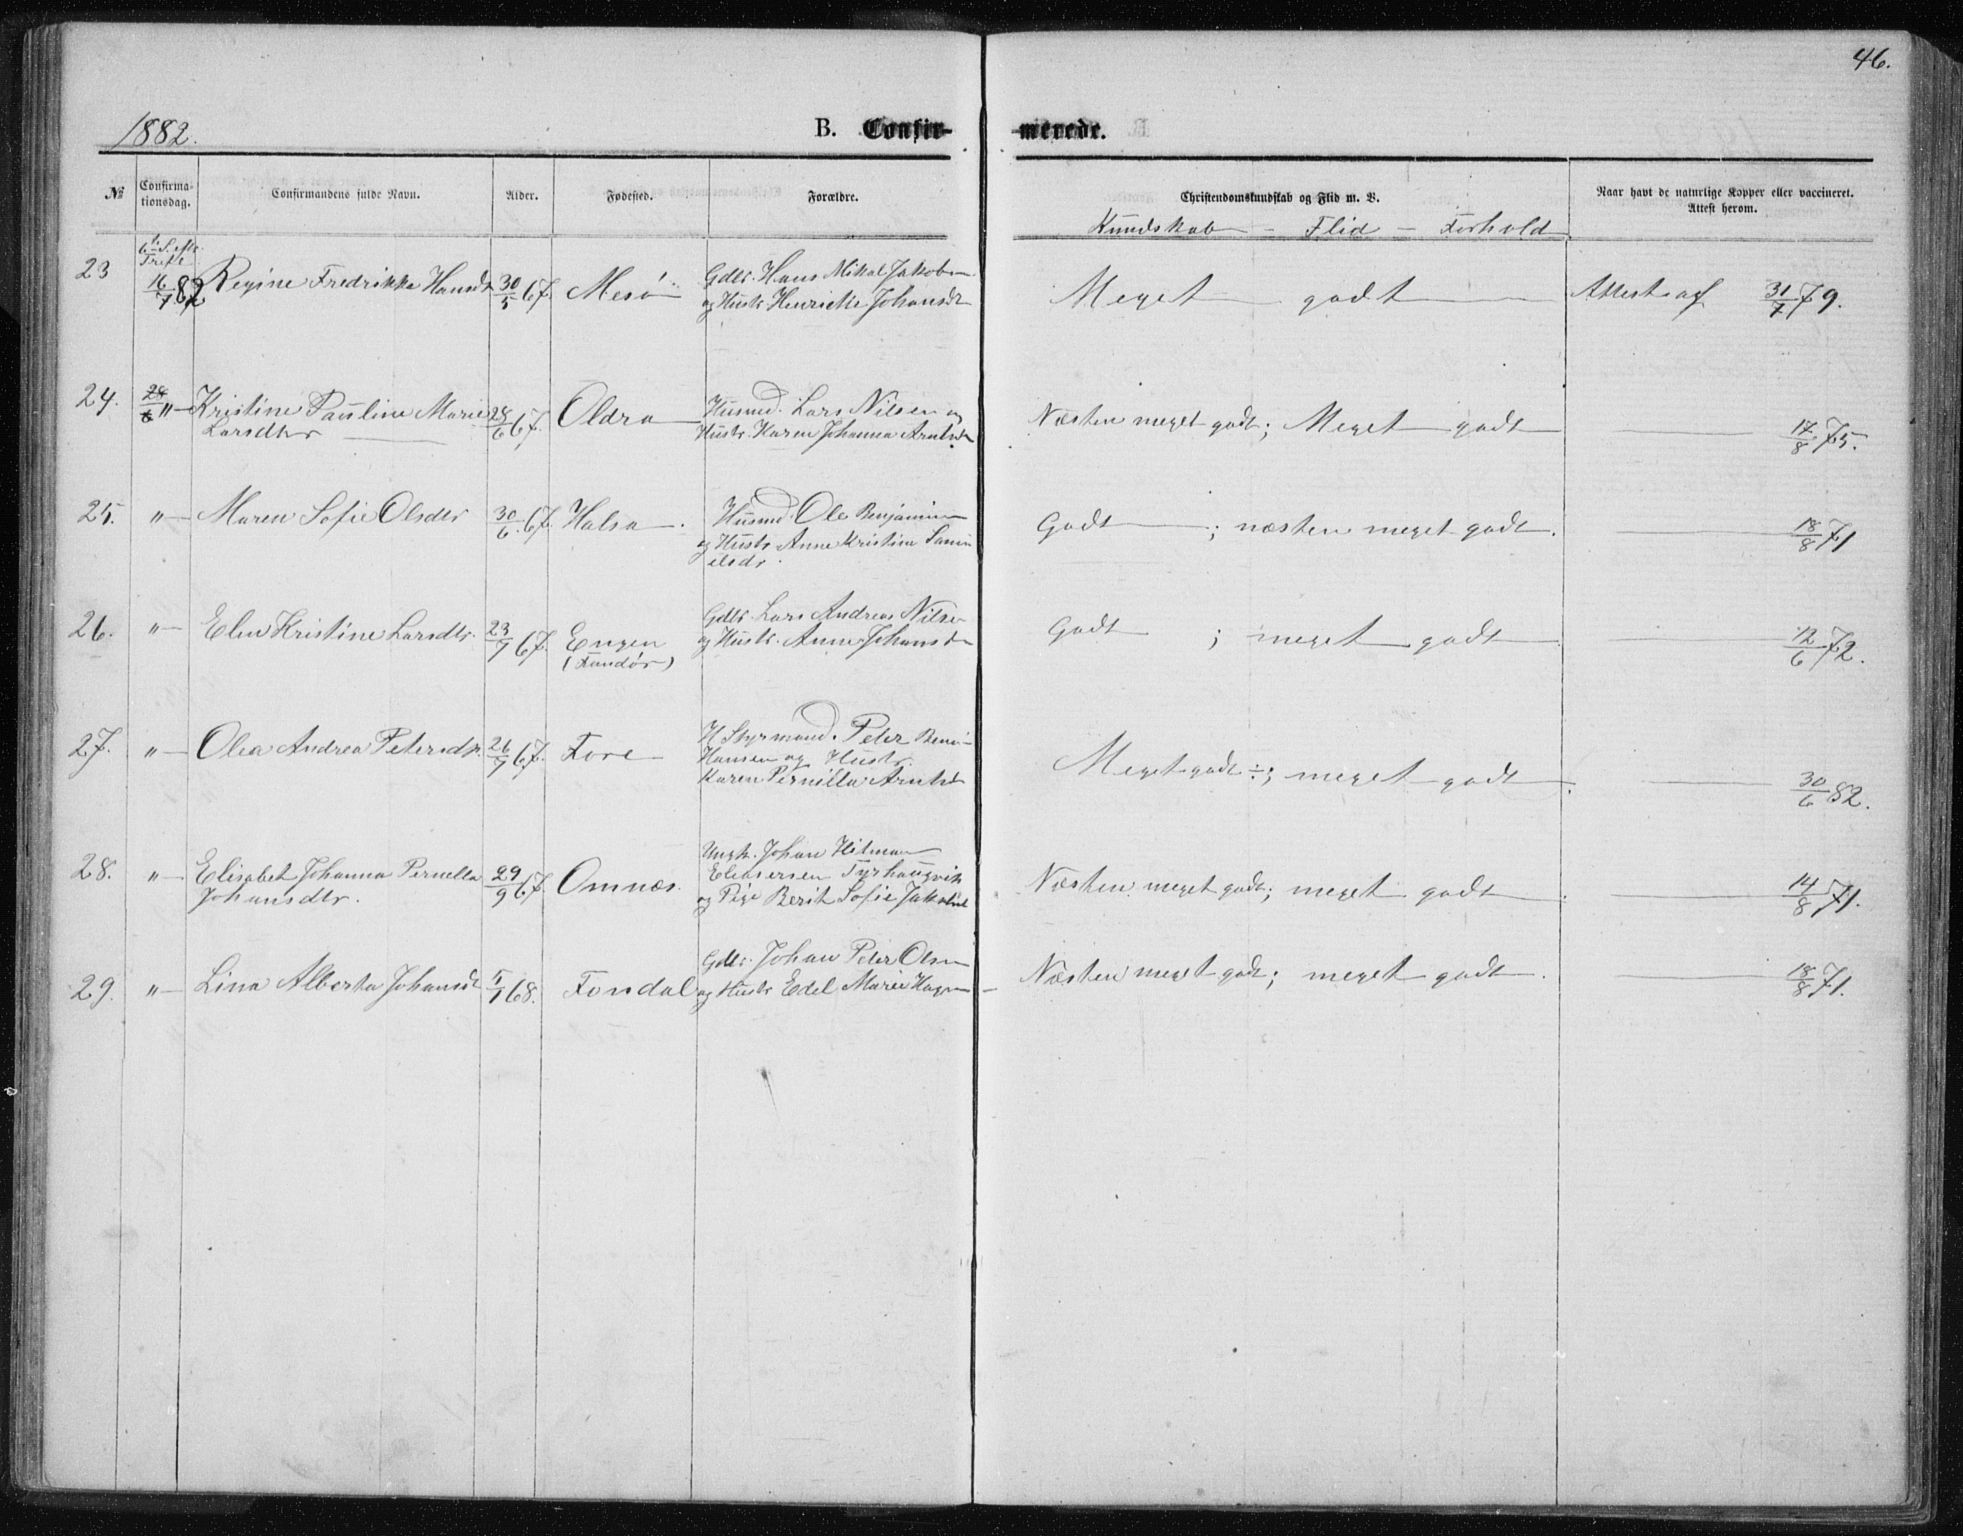 46.
1882.
B. Confir-
merede.
№
Confirma-
tionsdag.
Confirmandens fulde Navn.
Alder.
Fødested.
Forældre.
Christendomskundskab og Flid m. V.
Naar havt de naturlige Kopper eller vaccineret.
Attest herom.
Kundskab - Flid - Forhold
6te S. e. Tref.
23 16/7 82 Regine Fredrikke Hansdt 30/5 67. Mesö Gdbr. Hans Mikal Jakobsen
og Hustr Henrikke Johansdt
Meget godt Attest af 31/7 79.
24. 28/6 „ Kristine Pauline Marie 28/6 67. Oldra Husmd. Lars Nilsen og
Larsdtr Hustr. Karen Johanna Arntsdt
Næsten meget godt; Meget godt 17/8 75.
25. „ Maren Sofie Olsdtr 30/6 67. Halsa Husmd Ole Benjamin
og Hustr Anne Kristina Samu
elsdr.
Godt ; næsten meget godt. 18/8 71
26. „ Elen Kristine Larsdtr. 23/7 67. Engen Gdbr. Lars Andreas Nilsen
(Fondør) og Hustr. Anne Johansdt
Godt ; meget godt 12/6 72.
27. „ Olea Andrea Petersdtr. 26/7 67. Fore H Styrmand. Peter
Hansen og Hustr.
Karen Pernilla Arntsd
Meget godt ÷; meget godt 30/6 82.
28. „ Elisabet Johanna Pernella 29/9 67. Omnæs. Ungk. Johan Hitman
Johansdtr. Eliasersen Tyrhaugvik
og Pige Berit Sofie Jakobsd
Næsten meget godt; meget godt 14/8 71.
29. „ Lina Alberta Johansdt 5/1 68. Fondal Gdbr. Johan Peter Olsen
og Hustr Edel Marie Hagen
Næsten meget godt; meget godt. 18/8 71.